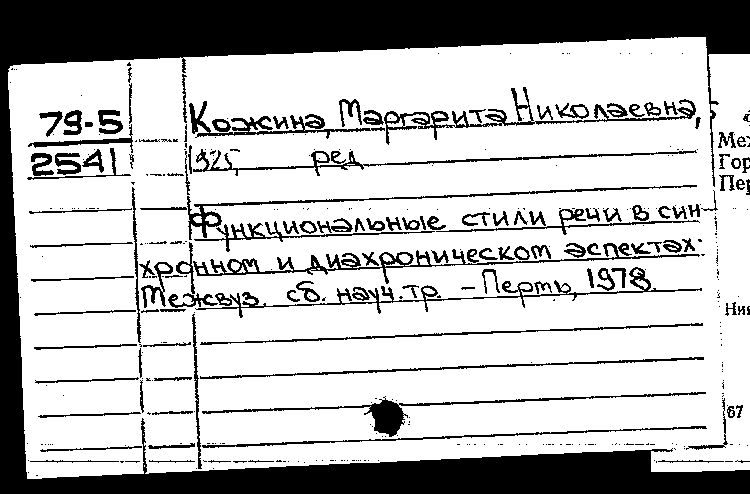 79-5
2541
Кожина, Маргарита Николаевна,
1925, ред
Функциональные стили речи в син-
хронном и диахроническом аспектах:
Межвуз. сб. науч. тр. – Пермь, 1978.
67